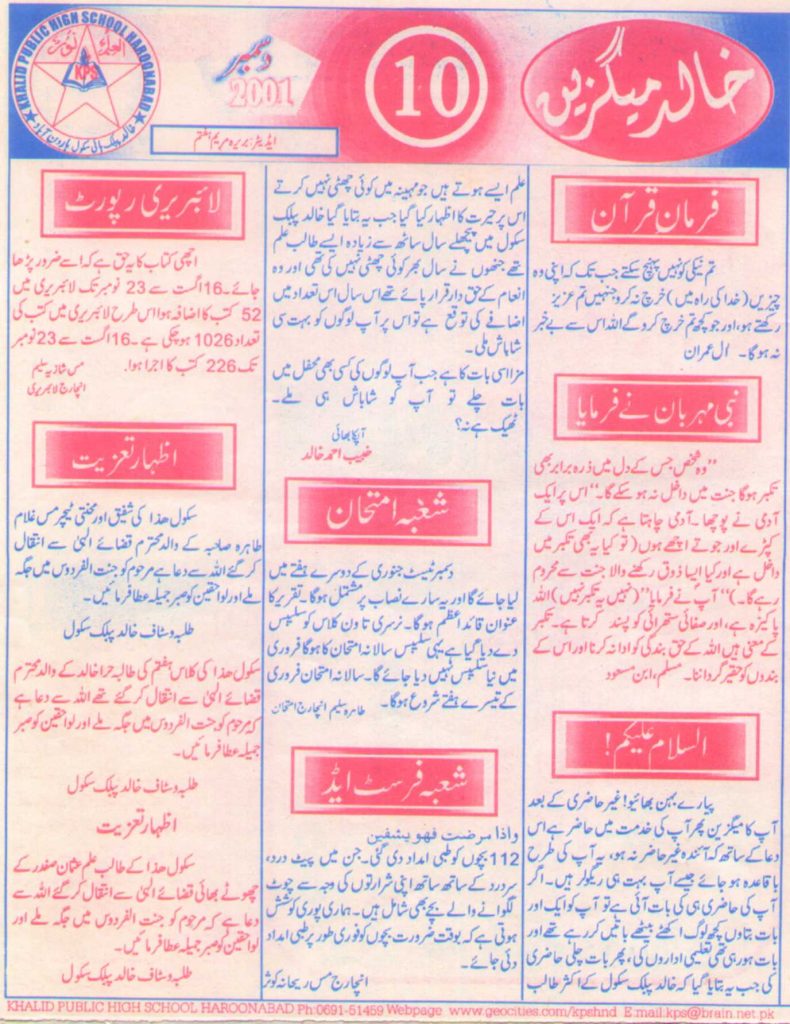 خالد میگزین
10
دسمبر
2001
ایڈیٹر: بریرہ مریم ہفتم
KHALID PUBLIC HIGH SCHOOL HAROONABAD
KPS
خالد پبلک ہائی سکول ہارون آباد
فرمان قرآن
تم نیکی کو نہیں پہنچ سکتے جب تک کہ اپنی وہ
چیزیں (خدا کی راہ میں) خرچ نہ کرو جنہیں تم عزیز
رکھتے ہو، اور جو کچھ تم خرچ کرو گے اللہ اس سے بے خبر
نہ ہوگا۔ ال عمران
نبی مہربان نے فرمایا
’’وہ شخص جس کے دل میں ذرہ برابر بھی
تکبر ہوگا جنت میں داخل نہ ہو سکے گا۔‘‘ اس پر ایک
آدمی نے پوچھا۔ آدمی چاہتا ہے کہ ایک اس کے
کپڑے اور جوتے اچھے ہوں (تو کیا یہ بھی تکبر میں
داخل ہے اور کیا ایسا ذوق رکھنے والا جنت سے محروم
رہے گا۔)‘‘ آپ نے فرمایا ’’(نہیں یہ تکبر نہیں) اللہ
پاکیزہ ہے، اور صفائی ستھرائی کو پسند کرتا ہے۔ تکبر
کے معنی ہیں اللہ کے حق بندگی کو ادا نہ کرنا اور اس کے
بندوں کو حقیر گرداننا۔ مسلم، ابن مسعود
السلام علیکم!
پیارے بہن بھائیو! غیر حاضری کے بعد
آپ کا میگزین پھر آپ کی خدمت میں حاضر ہے اس
دعا کے ساتھ کہ آئندہ غیر حاضر نہ ہو، یہ آپ کی طرح
باقاعدہ ہو جائے جیسے آپ بہت ہی ریگولر ہیں۔ اگر
آپ کی حاضری ہی کی بات آئی ہے تو آپ کو ایک اور
بات بتاوں کچھ لوگ اکٹھے بیٹھے باتیں کر رہے تھے اور
بات ہو رہی تھی تعلیمی اداروں کی، پھر بات چلی حاضری
کی جب یہ بتایا گیا کہ خالد پبلک سکول کے اکثر طالب
علم ایسے ہوتے ہیں جو مہینہ میں کوئی چھٹی نہیں کرتے
اس پر حیرت کا اظہار کیا گیا جب یہ بتایا گیا خالد پبلک
سکول میں پچھلے سال ساٹھ سے زیادہ ایسے طالب علم
تھے جنھوں نے سال بھر کوئی چھٹی نہیں کی تھی اور وہ
انعام کے حق دار قرار پائے تھے اس سال اس تعداد میں
اضافے کی توقع ہے تو اس پر آپ لوگوں کو بہت سی
شاباش ملی۔
مزا اسی بات کا ہے جب آپ لوگوں کی کسی بھی محفل میں
بات چلے تو آپ کو شاباش ہی ملے۔
ٹھیک ہے نہ؟
آپکا بھائی
خبیب احمد خالد
شعبہ امتحان
دسمبر ٹیسٹ جنوری کے دوسرے ہفتے میں
لیا جائے گا اور یہ سارے نصاب پر مشتمل ہوگا۔ تقریر کا
عنوان قائد اعظم ہوگا۔ نرسری تا ون کلاس کو سلیبس
دے دیا گیا ہے یہی سلیبس سالانہ امتحان کا ہوگا فروری
میں نیا سلیبس نہیں دیا جائے گا۔ سالانہ امتحان فروری
کے تیسرے ہفتے شروع ہوگا۔ طاہرہ سلیم انچارج امتحان
شعبہ فرسٹ ایڈ
واذا مرضت فھو یشفین
112 بچوں کو طبی امداد دی گئی۔ جن میں پیٹ درد،
سر درد کے ساتھ ساتھ اپنی شرارتوں کی وجہ سے چوٹ
لگوانے والے بچے بھی شامل ہیں۔ ہماری پوری کوشش
ہوتی ہے کہ بوقت ضرورت بچوں کو فوری طور پر طبی امداد
دی جائے۔
انچارج مس ریحانہ کوثر
لائبریری رپورٹ
اچھی کتاب کا یہ حق ہے کہ اسے ضرور پڑھا
جائے۔ 16 اگست سے 23 نومبر تک لائبریری میں
52 کتب کا اضافہ ہوا اس طرح لائبریری میں کتب کی
تعداد 1026 ہو چکی ہے۔ 16 اگست سے 23 نومبر
تک 226 کتب کا اجرا ہوا۔
مس شازیہ سلیم
انچارج لائبریری
اظہار تعزیت
سکول ھذا کی شفیق اور محنتی ٹیچر مس غلام
طاہرہ صاحبہ کے والد محترم قضائے الہیٰ سے انتقال
کر گئے اللہ سے دعا ہے مرحوم کو جنت الفردوس میں جگہ
ملے اور لواحقین کو صبر جمیلہ عطا فرمائیں۔
طلبہ و سٹاف خالد پبلک سکول
سکول ھذا کی کلاس ہفتم کی طالبہ حرا خالد کے والد محترم
قضائے الہیٰ سے انتقال کر گئے تھے اللہ سے دعا ہے
کہ مرحوم کو جنت الفردوس میں جگہ ملے اور لواحقین کو صبر
جمیلہ عطا فرمائیں۔
طلبہ و سٹاف خالد پبلک سکول
اظہار تعزیت
سکول ھذا کے طالب علم عثمان صفدر کے
چھوٹے بھائی قضائے الہیٰ سے انتقال کر گئے اللہ سے
دعا ہے کہ مرحوم کو جنت الفردوس میں جگہ ملے اور
لواحقین کو صبر جمیلہ عطا فرمائیں۔
طلبہ و سٹاف خالد پبلک سکول
KHALID PUBLIC HIGH SCHOOL HAROONABAD Ph:0691-51459 Webpage www.geocities.com/kpshnd E.mail.kps@brain.net.pk